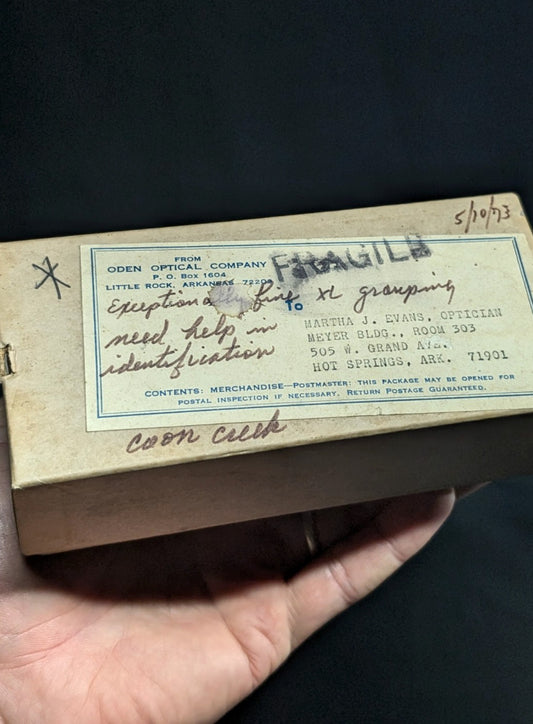 5/10/73
FROM
ODEN OPTICAL COMPANY
P. O. Box 1604
LITTLE ROCK, ARKANSAS 7220
FRAGILE
Exceptionally fine xl grouping
need help in
identification
TO
MARTHA J. EVANS, OPTICIAN
MEYER BLDG., ROOM 303
505 W. GRAND AVE.
HOT SPRINGS, ARK. 71901
CONTENTS: MERCHANDISE—POSTMASTER: THIS PACKAGE MAY BE OPENED FOR
POSTAL INSPECTION IF NECESSARY. RETURN POSTAGE GUARANTEED.
coon creek